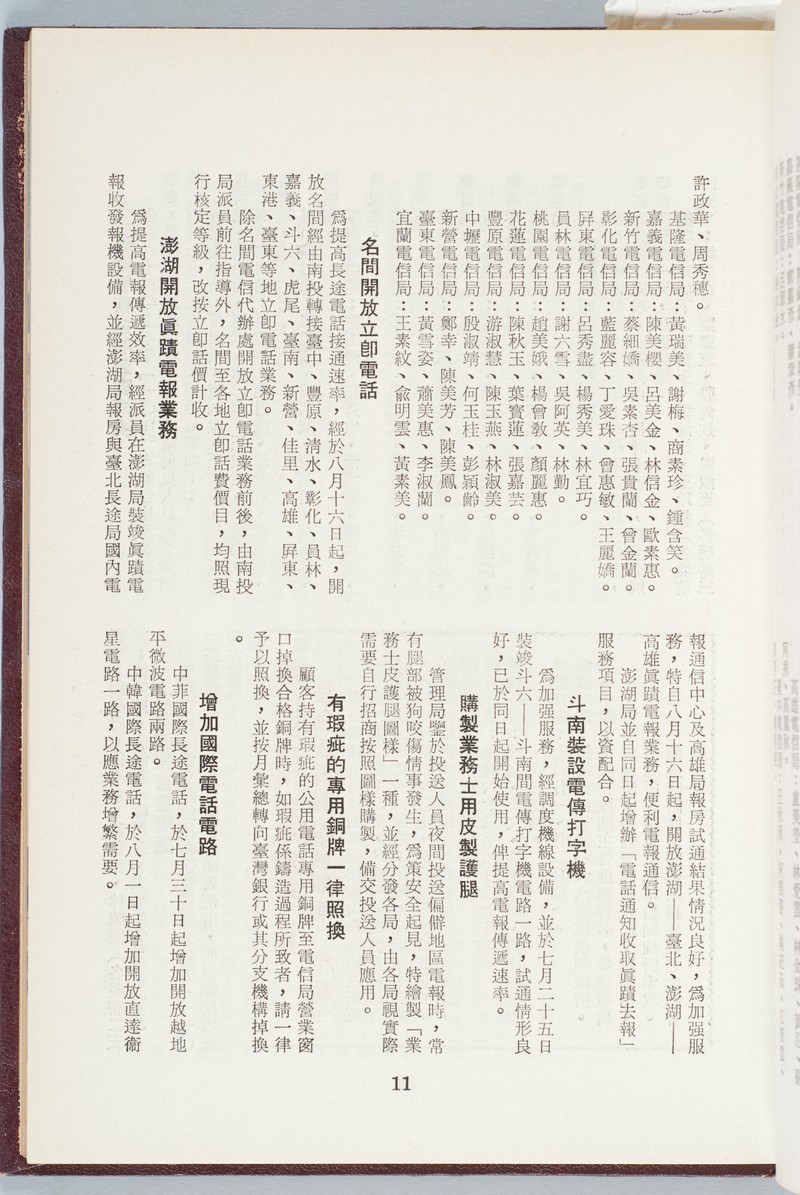 許政華、周秀穗。
基隆電信局：黃瑞美、謝梅、商素珍、鍾含笑。
嘉義電信局：陳美櫻、呂美金、林信金、歐素惠。
新竹電信局：蔡細嬌、吳素杏、張貴蘭、曾金蘭。
彰化電信局：藍麗容、丁愛珠、曾惠敏、王麗嬌。
屏東電信局：呂秀盡、楊秀美、林宜巧。
員林電信局：謝六雪、吳阿英、林勤。
桃園電信局：趙美娥、楊曾敎、顏麗惠。
花蓮電信局：陳秋玉、葉寶蓮、張嘉芸。
豐原電信局：游淑慧、陳玉燕、林淑美。
中壢電信局：殷淑靖、何玉桂、彭穎齡。
新營電信局：鄭幸、陳美芳、陳美鳳。
臺東電信局：黃雪姿、蕭美惠、李淑蘭。
宜蘭電信局：王素紋、兪明雲、黃素美。
名間開放立卽電話
爲提高長途電話接通速率，經於八月十六日起，開
放名間經由南投轉接臺中、豐原、淸水、彰化、員林、
嘉義、斗六、虎尾、臺南、新營、佳里、高雄、屏東、
東港、臺東等地立卽電話業務。
除名間電信代辦處開放立卽電話業務前後，由南投
局派員前往指導外，名間至各地立卽話費價目，均照現
行核定等級，改按立卽話價計收。
澎湖開放眞蹟電報業務
爲提高電報傳遞效率，經派員在澎湖局裝竣眞蹟電
報收發報機設備，並經澎湖局報房與臺北長途局國內電
報通信中心及高雄局報房試通結果情況良好，爲加强服
務，特自八月十六日起，開放澎湖——臺北、澎湖——
高雄眞蹟電報業務，便利電報通信。
澎湖局並自同日起增辦「電話通知收取眞蹟去報」
服務項目，以資配合。
斗南裝設電傳打字機
爲加强服務，經調度機線設備，並於七月二十五日
裝竣斗六——斗南間電傳打字機電路一路，試通情形良
好，已於同日起開始使用，俾提高電報傳遞速率。
購製業務士用皮製護腿
管理局鑒於投送人員夜間投送偏僻地區電報時，常
有腿部被狗咬傷情事發生，爲策安全起見，特繪製「業
務士皮護腿圖樣」一種，並經分發各局，由各局視實際
需要自行招商按照圖樣購製，備交投送人員應用。
有瑕疵的專用銅牌一律照換
顧客持有瑕疵的公用電話專用銅牌至電信局營業窗
口掉換合格銅牌時，如瑕疵係鑄造過程所致者，請一律
予以照換，並按月彙總轉向臺灣銀行或其分支機構掉換
。
增加國際電話電路
中菲國際長途電話，於七月三十日起增加開放越地
平微波電路兩路。
中韓國際長途電話，於八月一日起增加開放直達衞
星電路一路，以應業務增繁需要。
11